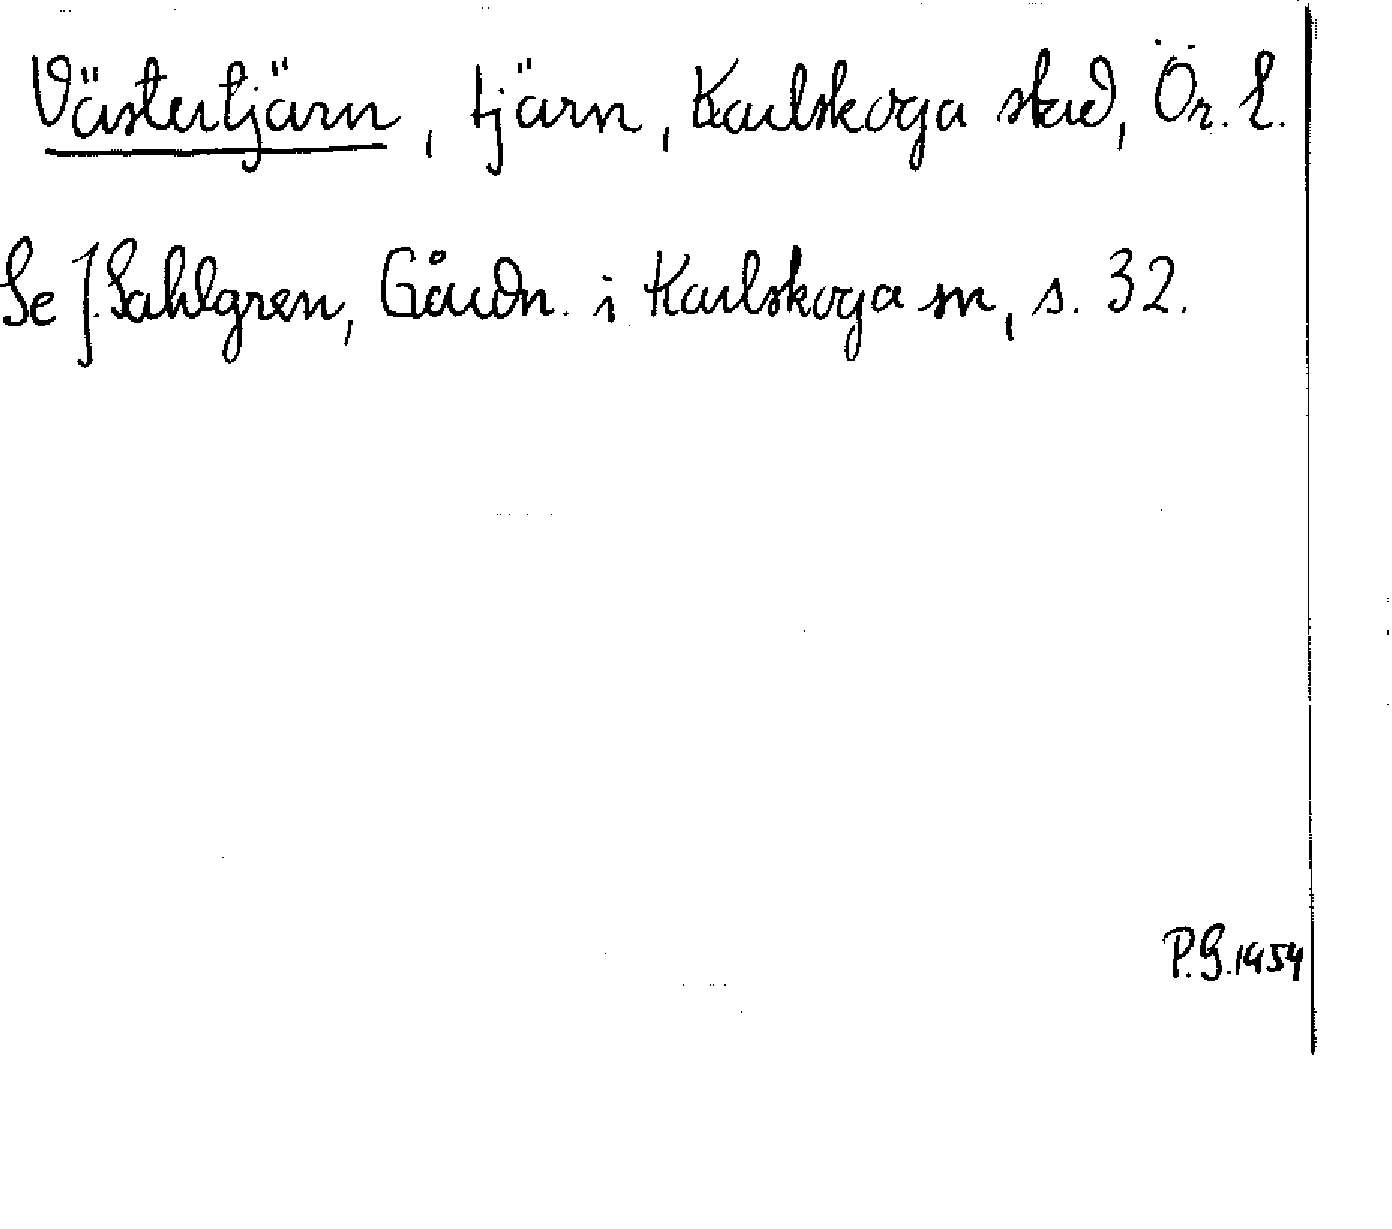 Västertjärn, tjärn, Karlskoga stad, Ör. L.
Se J. Sahlgren, Gårdn. i Karlskoga sn, s. 32.
P.G. 1954